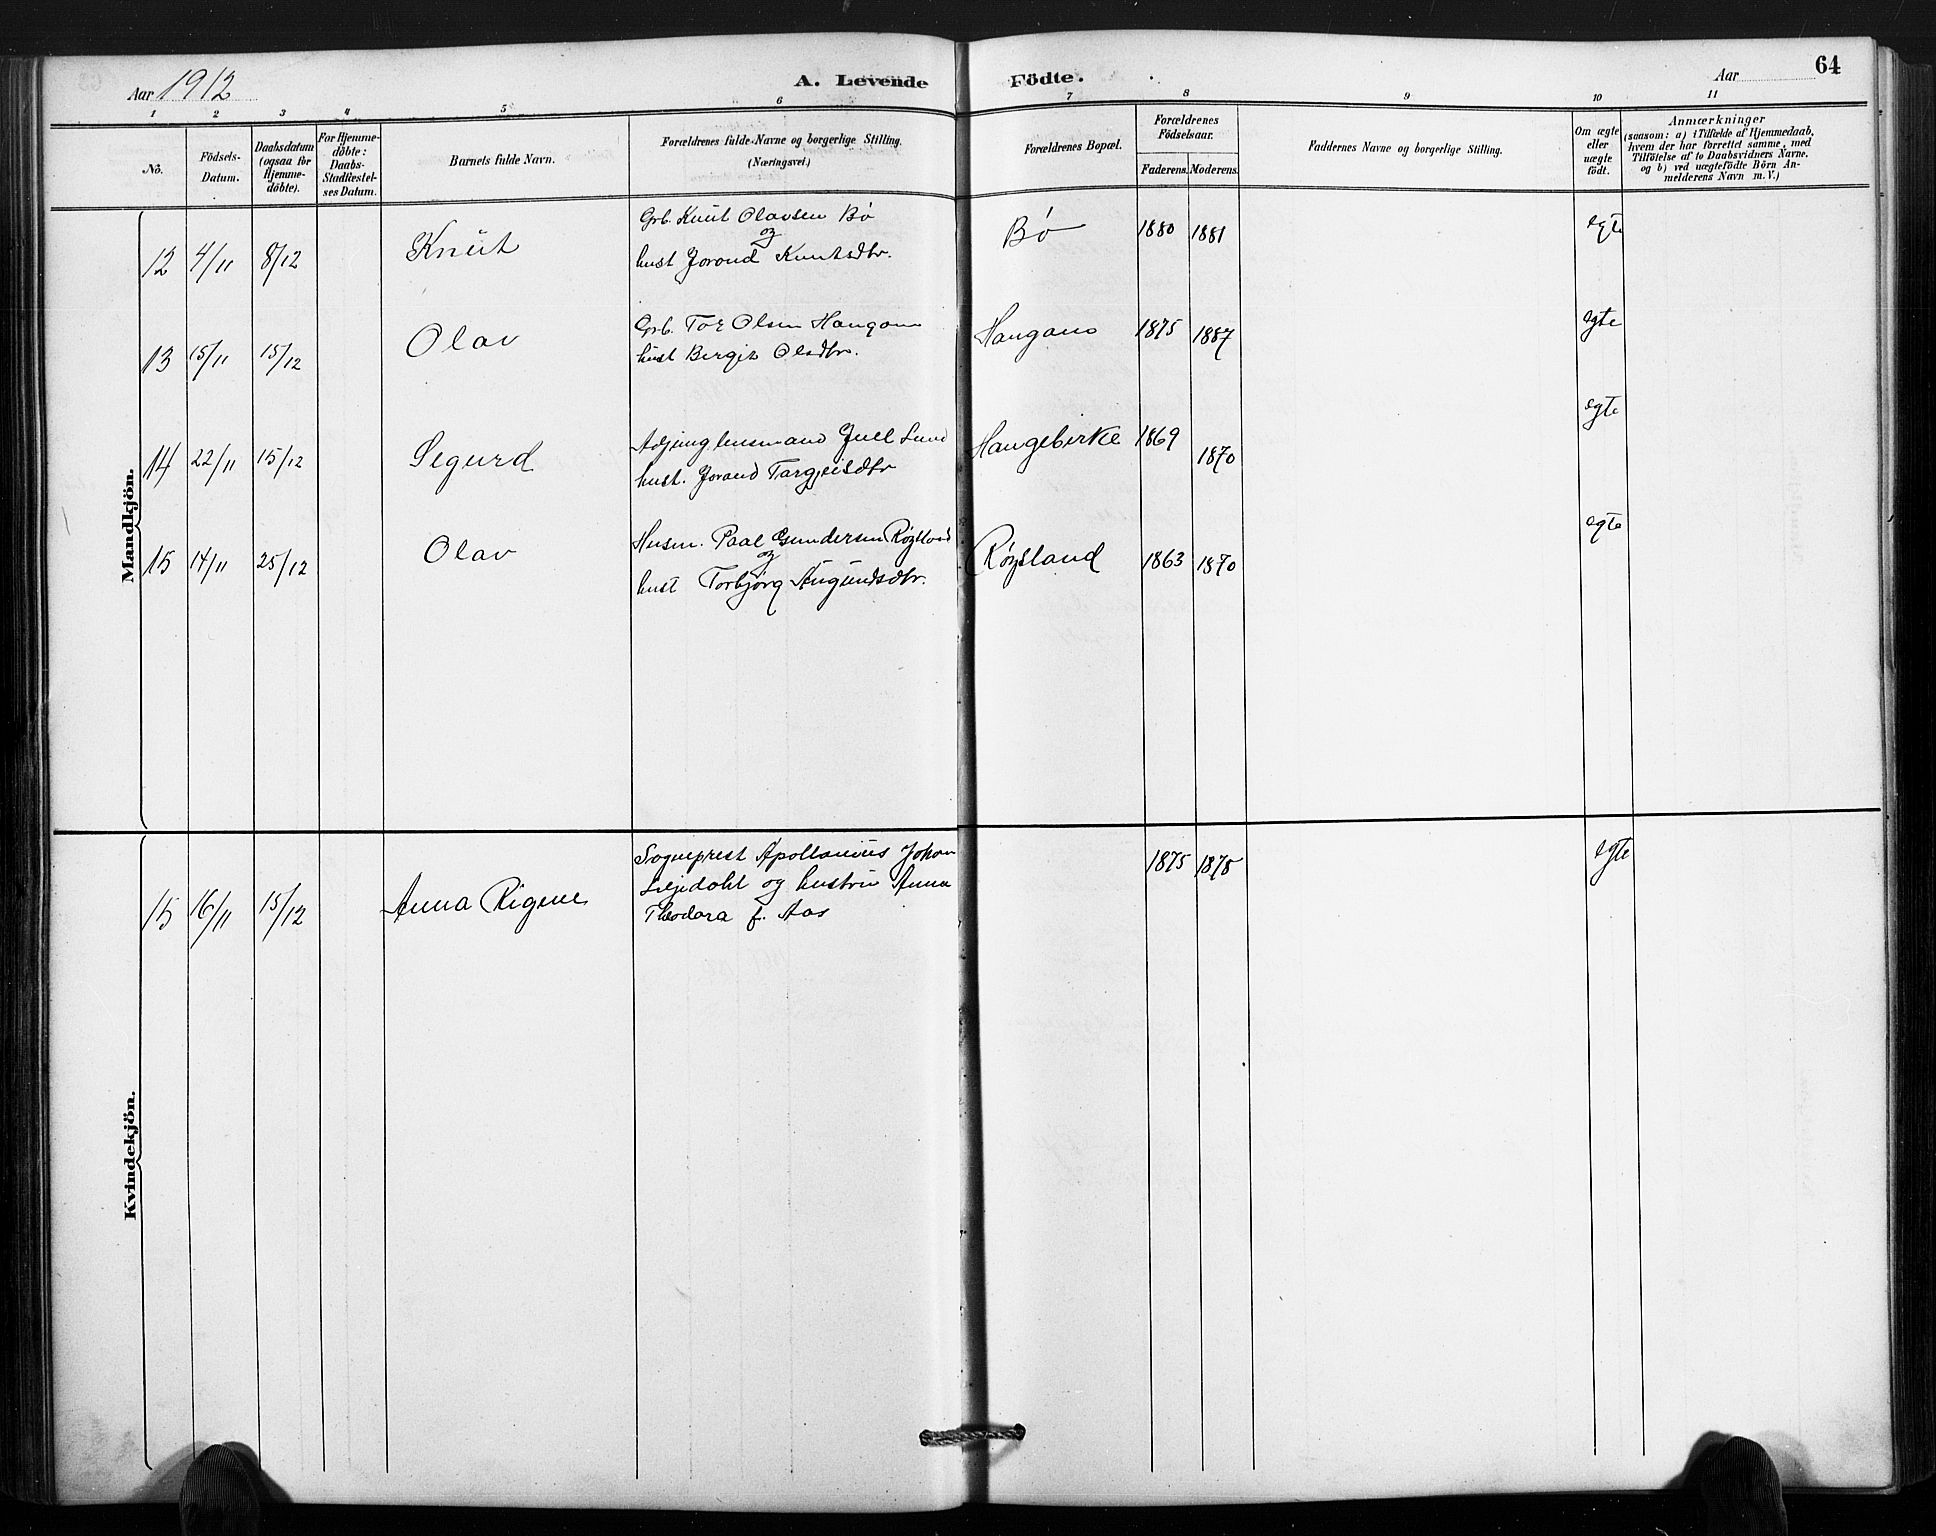 Aar 1912
A. Levende Födte.
Aar
64
1 2 3 4 5 6 7 8 9 10 11
No.
Födsels-Datum.
Daabsdatum (ogsaa for Hjemme-döbte).
For Hjemme-döbte: Daabs-Stadfæstel-ses Datum.
Barnets fulde Navn.
Forældrenes fulde Navne og borgerlige Stilling.
(Næringsvei.)
Forældrenes Bopæl.
Forældrenes Födselsaar.
Faderens. Moderens.
Faddernes Navne og borgerlige Stilling.
Om ægte eller uægte födt.
Anmærkninger
(saasom: a) i Tilfælde af Hjemmedaab,
hvem der har forrettet samme, med
Tilföielse af to Daabsvidners Navne,
og b) ved uægtefödte Börn An-
melderens Navn m. V.)
Mandkjön.
12 4/11 8/12 Knut Grb. Knut Olavsen Bø Bø 1880 1881 egte
og
hust Jorond Knutsdtr.
13 15/11 15/12 Olav Grb. Tor Olsen Haugann Haugann 1875 1887 egte
hust Bergit Olsdtr.
14 22/11 15/12 Segurd Juel Lund Haugebirke 1869 1870 egte
hust. Jorand Targjeisdtr
15 14/11 25/12 Olav Husm. Paal Gundersen Røysland Røysland 1863 1870 egte
og
hust Torbjørg Augundsdtr.
Kvindekjön.
15 16/11 15/12 Anna Sogneprest Apollonius Johan 1875 1875 egte
Liljedahl og hustru Anna
Theodora f. Aas